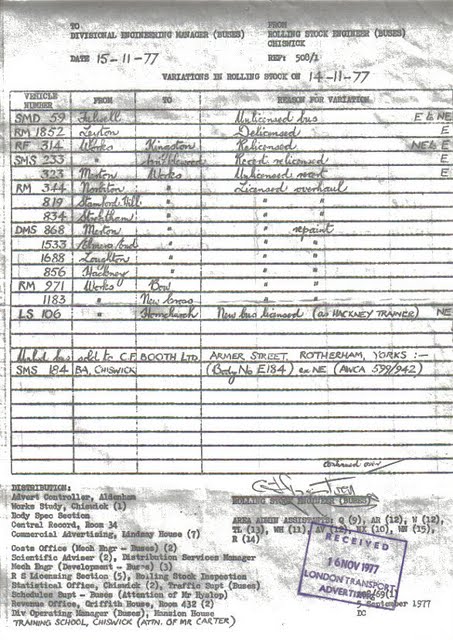 TO FROM
DIVISIONAL ENGINEERING MANAGER (BUSES) ROLLING STOCK ENGINEER (BUSES)
CHISWICK
DATE 15-11-77 REF: 508/1
VARIATIONS IN ROLLING STOCK ON 14-11-77
VEHICLE NUMBER FROM TO REASON FOR VARIATION
SMD 59 Fulwell Unlicensed bus E & NE
RM 1852 Leyton Delicensed E
RF 314 Works Kingston Relicensed NE & E
SMS 233 " Recert relicensed E
323 Merton Works Unlicensed E
RM 344 Norbiton " Licensed overhaul
819 Stamford Hill " " "
834 Streatham " " "
DMS 868 Merton " " repaint
1533 " " "
1688 Loughton " " "
856 Hackney " " "
RM 971 Works Bow " "
1183 " New Cross " "
LS 106 " Hornchurch New bus licensed (as HACKNEY TRAINER) NE
bus sold to C.F. BOOTH LTD. ARMER STREET, ROTHERHAM, YORKS :—
SMS 184 BA, CHISWICK (Body No E184) ex NE (AWCA 599/942)
continued over
DISTRIBUTION:
Advert Controller, Aldenham
Works Study, Chiswick (1)
Body Spec Section
Central Record, Room 34
Commercial Advertising, Lindsay House (7)
Costs Office (Mech Engr - Buses) (2)
Scientific Adviser (2), Distribution Services Manager
Mech Engr (Development - Buses) (3)
R S Licensing Section (5), Rolling Stock Inspection
Statistical Office, Chiswick (2), Traffic Supt (Buses)
Schedules Supt - Buses (Attention of Mr Hyslop)
Revenue Office, Griffith House, Room 432 (2)
Div Operating Manager (Buses), Mansion House
TRAINING SCHOOL, CHISWICK (ATTN. OF MR CARTER)
ROLLING STOCK ENGINEER (BUSES)
AREA ADMIN ASSISTANTS: Q (9), AR (12), W (12),
TL (13), WH (11), HK (10), WN (15),
R (14)
RECEIVED
16 NOV 1977
LONDON TRANSPORT
ADVERTISING
5 September 1977
DC